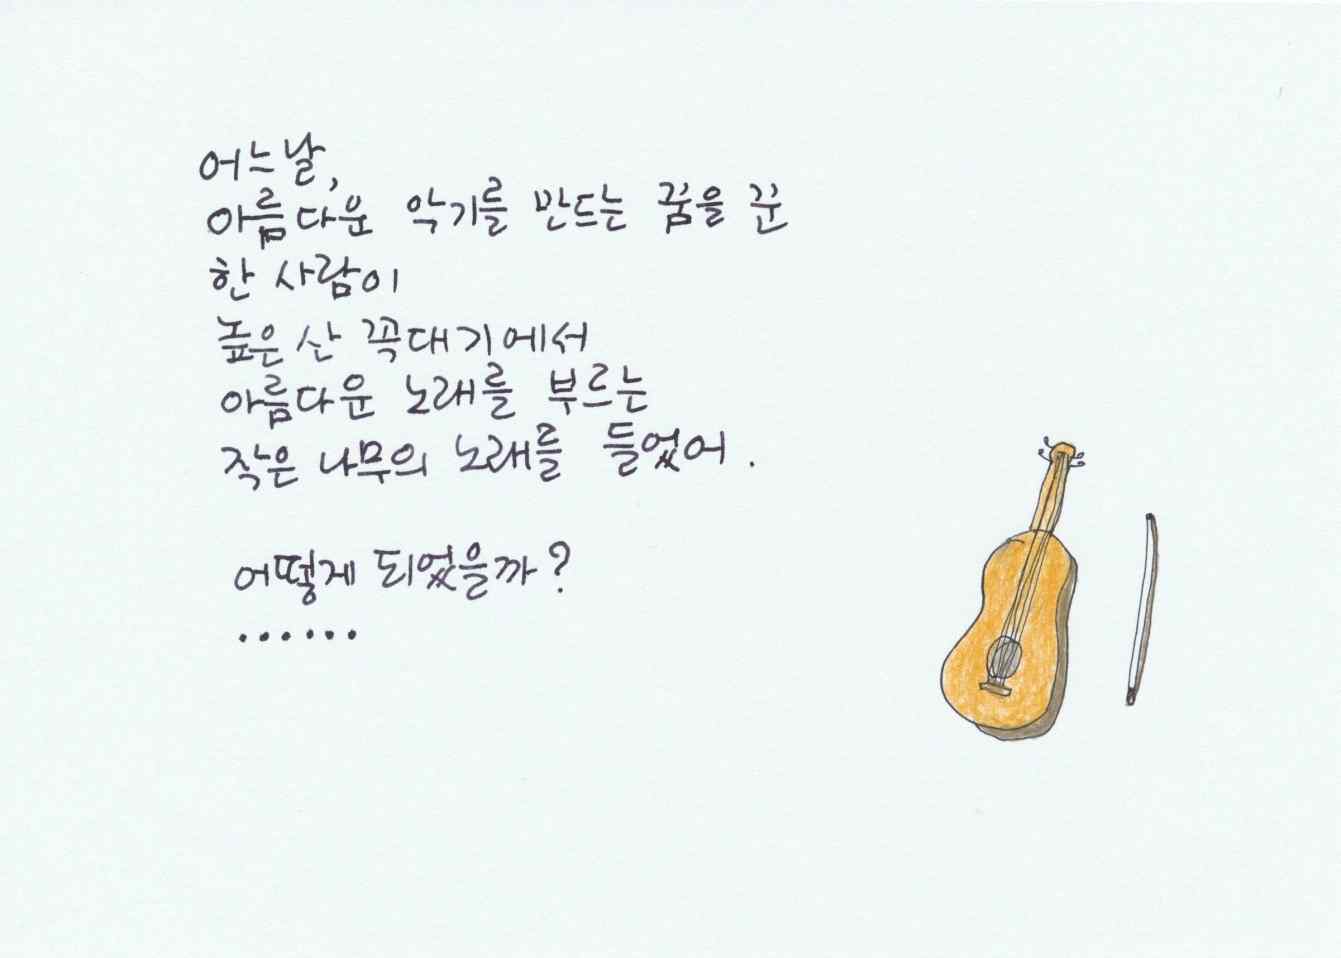 어느날,
아름다운 악기를 만드는 꿈을 꾼
한 사람이
높은 산 꼭대기에서
아름다운 노래를 부르는
작은 나무의 노래를 들었어.
어떻게 되었을까?
......